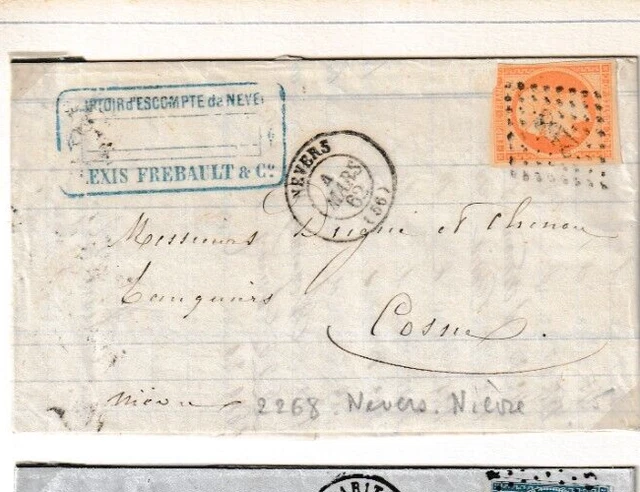 COMPTOIR d'ESCOMPTE de NEVE
EXIS FREBAULT & Cº
NEVERS
4
MARS
62
(56)
Messieurs et
Banquiers
Cosne.
Nièvre
2268 Nevers. Nièvre
ARIT